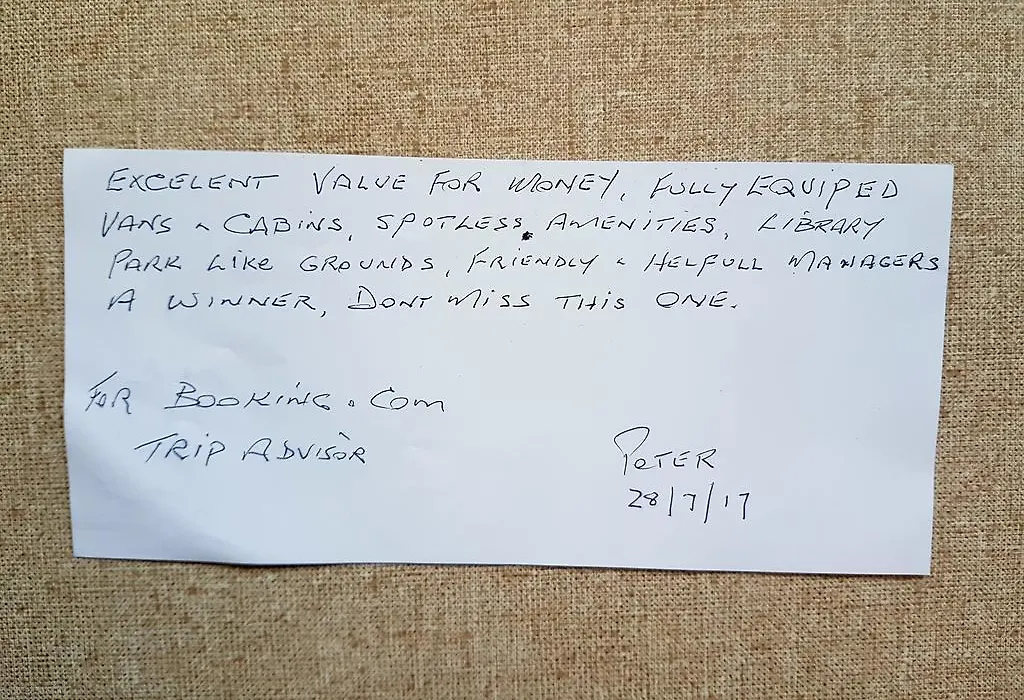 EXCELENT VALUE FOR MONEY, FULLY EQUIPED
VANS & CABINS, SPOTLESS AMENITIES, LIBRARY
PARK LIKE GROUNDS, FRIENDLY & HELPFULL MANAGERS
A WINNER, DONT MISS THIS ONE.
FOR BOOKING.COM
TRIP ADVISOR
PETER
28/7/17